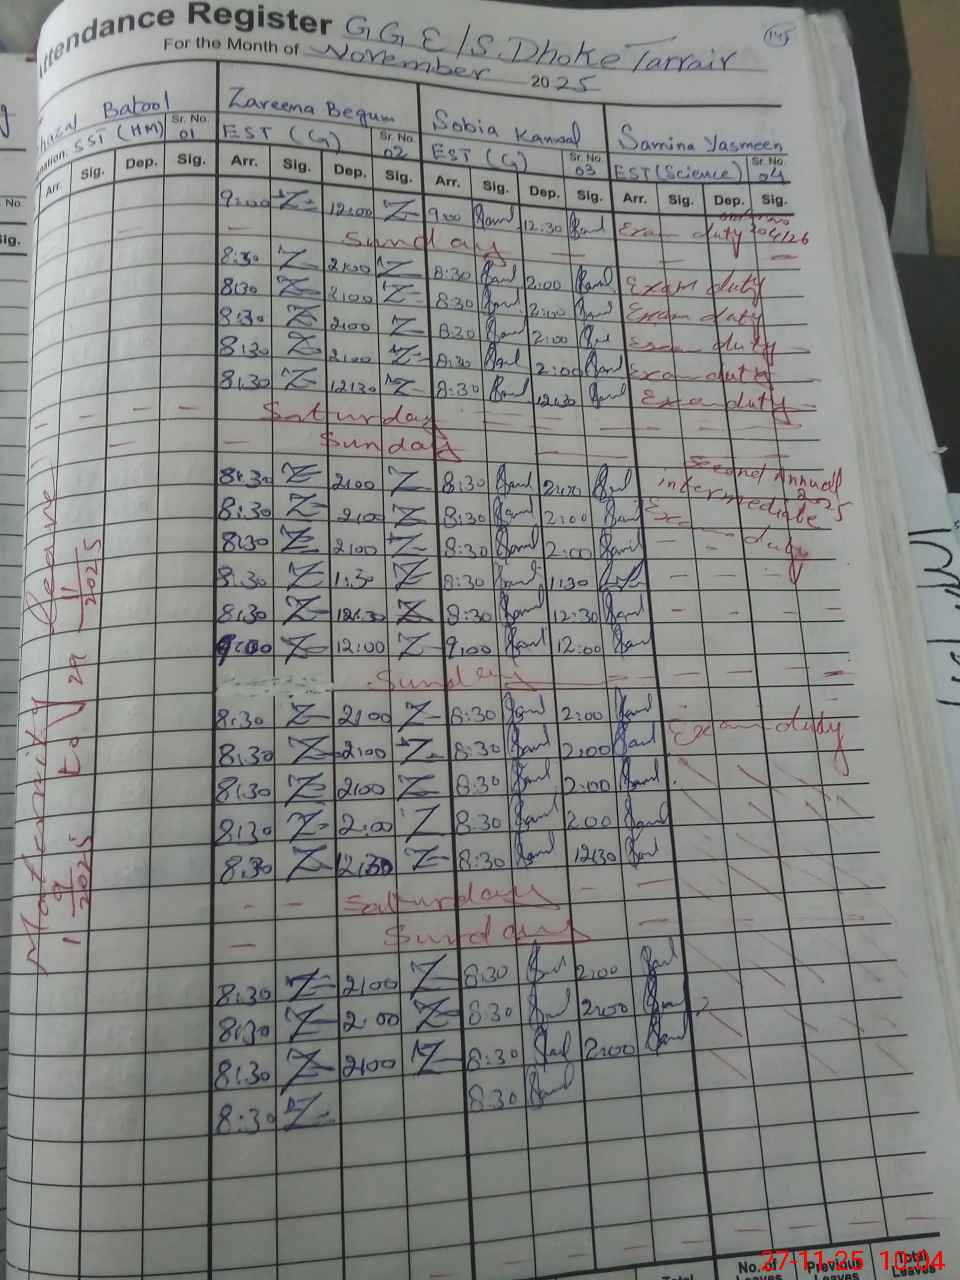 Attendance Register G.G.E/S. Dhoke Tarrair
145
For the Month of November 2025
Batool Zareena Begum Sobia Kanwal Samina Yasmeen
SST (HM) Sr. No. 01 EST (G) Sr. No. 02 EST (G) Sr. No. 03 EST (Science) Sr. No. 04
Arr. Sig. Dep. Sig. Arr. Sig. Dep. Sig. Arr. Sig. Dep. Sig. Arr. Sig. Dep. Sig.
9:00 Z 12:00 Z 9:00 12:30 Exam duty
Sunday
8:30 Z 2:00 Z 8:30 2:00 Exam duty
8:30 Z 2:00 Z 8:30 2:00 Exam duty
8:30 Z 2:00 Z 8:30 2:00 Exam duty
8:30 Z 2:00 Z 8:30 2:00 Exam duty
8:30 Z 12:30 Z 8:30 12:30 Exam duty
Saturday
Sunday
Second Annual
8:30 Z 2:00 Z 8:30 2:00 intermediate 2025
8:30 Z 2:00 Z 8:30 2:00
8:30 Z 2:00 Z 8:30 2:00 duty
8:30 Z 1:30 Z 8:30 1:30
8:30 Z 12:30 Z 8:30 12:30
9:00 Z 12:00 Z 9:00 12:00
Sunday
8:30 Z 2:00 Z 8:30 2:00 Exam duty
8:30 Z 2:00 Z 8:30 2:00
8:30 Z 2:00 Z 8:30 2:00
8:30 Z 2:00 Z 8:30 2:00
8:30 Z 12:30 Z 8:30 12:30
Saturday
Sunday
8:30 Z 2:00 Z 8:30 2:00
8:30 Z 2:00 Z 8:30 2:00
8:30 Z 2:00 Z 8:30 2:00
8:30 Z 8:30
Maternity Leave
1 9 2025 to 29 11 2025
No. of Leaves Previous Leaves Total Leaves
Total
27-11-25 10:04